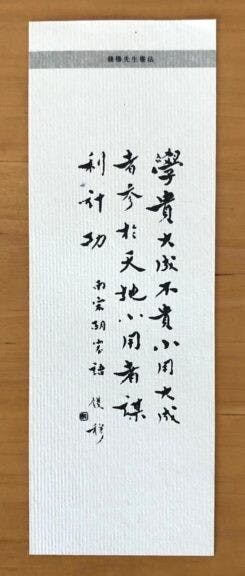 錢穆先生書法
學貴大成不貴小用大成
者參於天地小用者謀
利計功
南宋胡宏語 錢穆